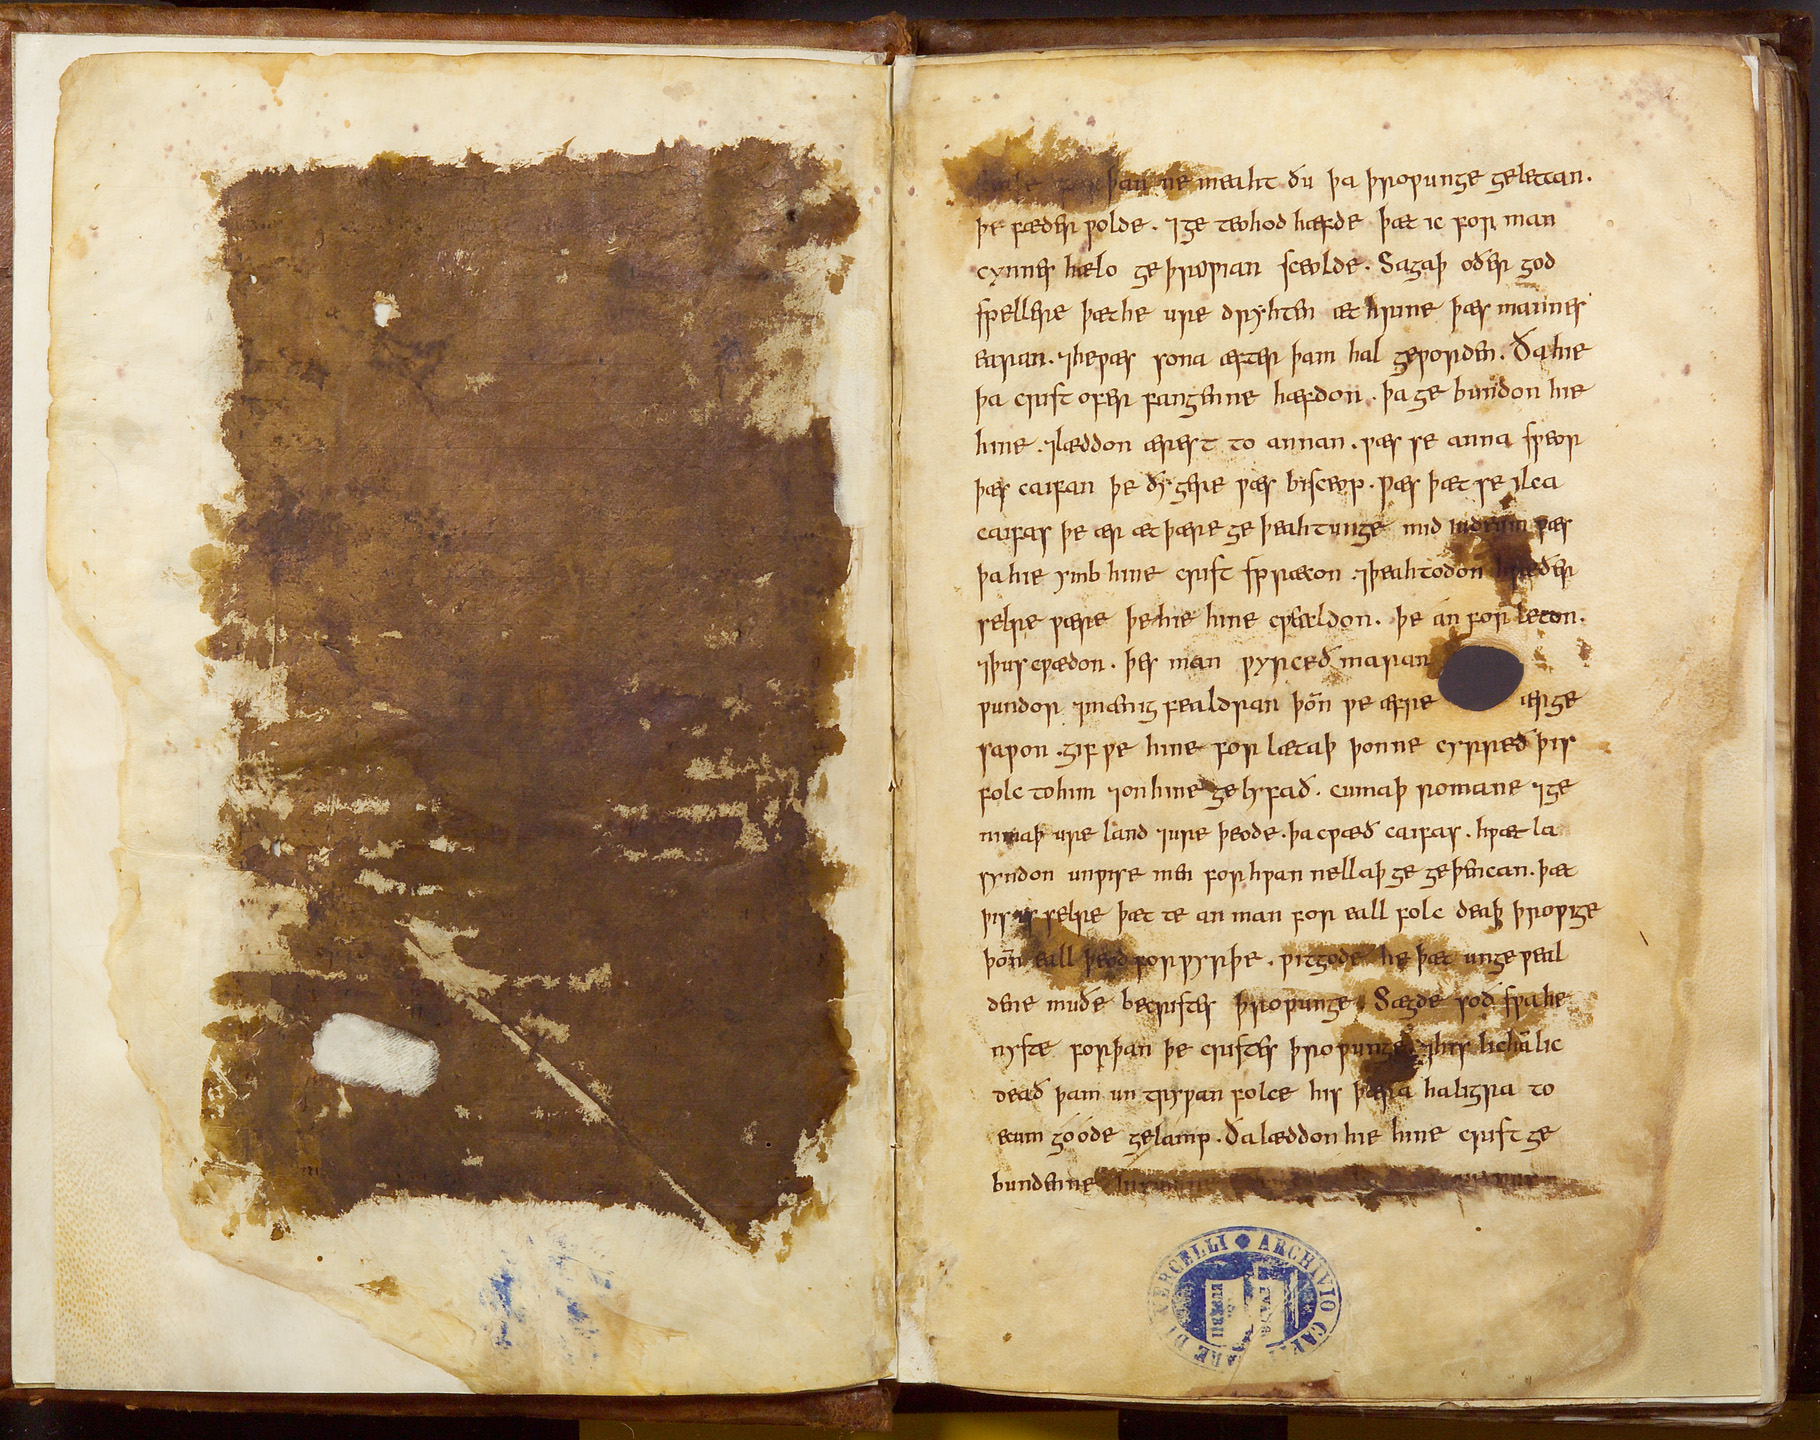 þan ne meaht ðu þa þroƿunge gelettan.
þe fæder ƿolde. ⁊ ge teohod hæfde þæt ic for man
cynnes hælo ge þroƿian sceolde. Sagaþ oðer god
spellere þæt he ure dryhten æt hrine þæs mannes
earan. ⁊ he ƿæs sona æfter þam hal geƿorden. Ða hie
þa crist ofer fangenne hæfdon. þa ge bundon hie
hine. ⁊ læddon ærest to annan. ƿæs se anna sƿeor
þæs caifan þe ðy gere ƿæs bisceop. ƿæs þæt se ylca
caifas þe ær æt þære ge þeahtunge mid iudeum ƿæs
þa hie ymb hine crist spræcon. ⁊ þeahtodon hƿæðer
selre ƿære þe hie hine cƿældon. þe án for leton.
⁊ þus cƿædon. þes man ƿyrceð maran
ƿundor ⁊ mænig fealdran þoñ ƿe æfre ær ge
saƿon. gif ƿe hine for lætaþ þonne cyrreð þis
folc to him ⁊ on hine ge lyfað. cumaþ romane ⁊ ge
nimaþ ure land ⁊ ure þeode. þa cƿæð caifas. hƿæt la
syndon unƿise men for hƿan nellaþ ge geþencan. þæt
þis is selre þæt te an man for eall folc deaþ þroƿige
þoñ eall þeod forƿyrþe. ƿitgode he þæt unge ƿeal
dene muðe be cristes þroƿunge. Sægde soð sƿa he
nyste forþan þe cristes þroƿunge. ⁊ his lichālic
deað þam un tryƿan folce his þæra haligra to
ecum góode gelamp. Ða læddon hie hine crist ge
bundenne
ARCHIVIO CAP
RE DI VERCELLI